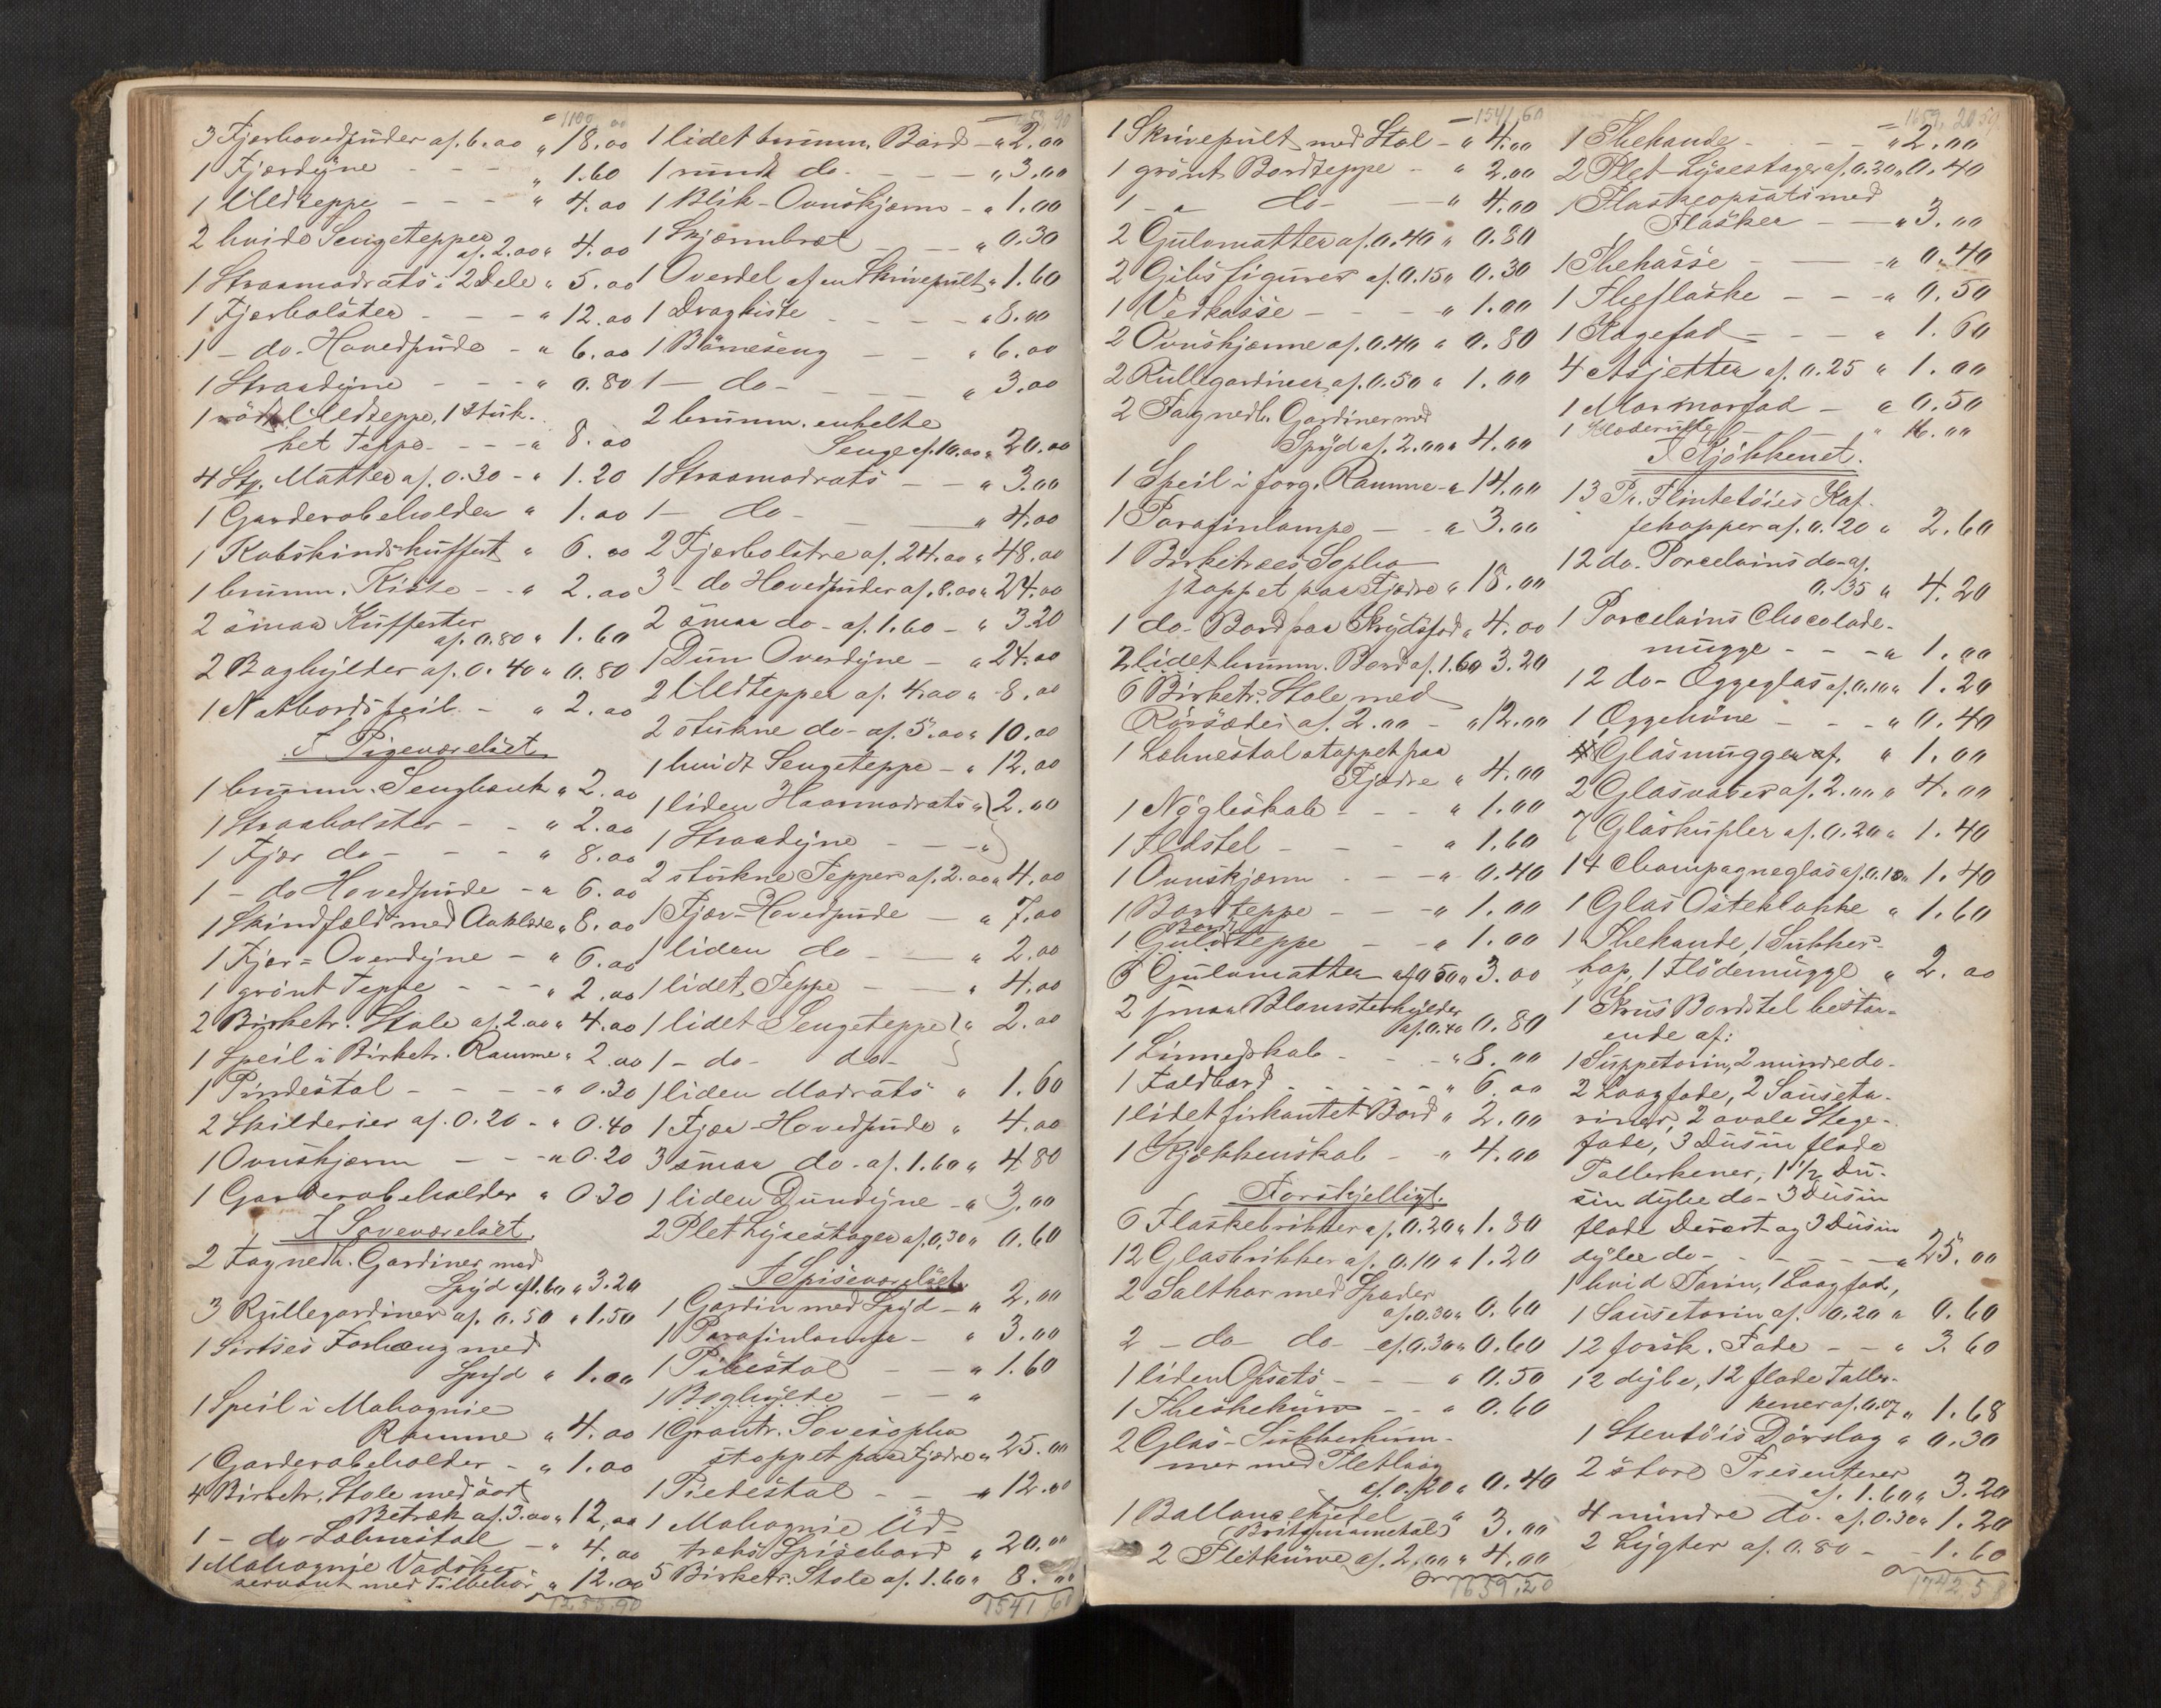 1100,00
3 Fjerhovedpuder af. 6.00 " 18.00
1 Fjerdyne - - - " 1.60
1 Uldteppe - - - " 4.00
2 hvide Sengetepper
af. 2.00 " 4.00
1 Straamadrats i 2 Dele " 5.00
1 Fjerbolster - - - " 12.00
1 - do. Hovedpude - " 6.00
1 Straadyne - - - " 0.80
1 rødt Uldteppe, 1 stuk-
ket Teppe - - - " 8.00
4 Stk. Matter af. 0.30 - " 1.20
1 Garderobeholder " 1.00
1 Kobskindskuffert " 6.00
1 brunm. Kiste - - " 2.00
2 smaa Kufferter
af. 0.80 " 1.60
2 Boghylder af. 0.40 " 0.80
1 Natbordspeil - " 2.00
I Pigeværelset
1 brunm. Sengbænk " 2.00
1 Straabolster - - " 2.00
1 Fjær do - - - " 8.00
1 - do Hovedpude - " 6.00
1 Skindfeld med Aaklæde " 8.00
1 Fjær-Overdyne - " 6.00
1 grønt Teppe - - - " 2.00
2 Birketr. Stole af. 2.00 " 4.00
1 Speil i Birketr. Ramme " 2.00
1 Pindestol - - - - " 0.30
2 Skilderier af. 0.20 - " 0.40
1 Ovnskjærm - - - " 0.20
1 Garderobeholder " 0.30
I Soveværelset.
2 Fag nedh. Gardiner med
Spyd af 1.60 " 3.20
3 Rullegardiner af. 0.50 " 1.50
1 Sirtses Forhæng med
Spyd " 1.00
1 Speil i Mahognie
Ramme " 4.00
1 Garderobeholder - " 1.00
4 Birketr. Stole med sort
Betræk af. 3.00 " 12.00
1 - do - Lænestol - " 4.00
1 Mahognie Vadske-
servant med Tilbehør " 12.00
1255.90
1255,90
1 lidet brunm. Bord - " 2.00
1 rundt do. - - - - " 3.00
1 Blik-Ovnskjærm - " 1.00
1 Skjærmbræt - - - " 0.30
1 Overdel af en Skrivepult " 1.60
1 Dragkiste - - - - " 8.00
1 Børneseng - - - " 6.00
1 - do - - - - " 3.00
2 brunm. enkelte
Senge af. 10.00 " 20.00
1 Straamadrats - - " 3.00
1 - do - - " 4.00
2 Fjærbolstre af. 24.00 " 48.00
3 - do Hovedpuder af. 8.00 " 24.00
2 smaa do - af. 1.60 - " 3.20
1 Dun Overdyne - " 24.00
2 Uldtepper af. 4.00 " 8.00
2 stukne do - af. 5.00 " 10.00
1 hvidt Sengeteppe - " 12.00
1 liden Haarmadrats " } 2.00
1 Straadyne - - - "
2 stukne Tepper af. 2.00 " 4.00
1 Fjær-Hovedpude - " 7.00
1 liden do - - " 2.00
1 lidet Teppe - - " 4.00
1 lidet Sengeteppe } " 2.00
1 - do - do -
1 liden Madrats " 1.60
1 Fjær-Hovedpude " 4.00
3 smaa do - af. 1.60 " 4.80
1 liden Dundyne - " 3.00
2 Plet Lysestager af. 0,30 " 0.60
I Spiseværelset.
1 Gardin med Spyd - " 2.00
1 Parafinlampe - " 3.00
1 Pibestol - - " 1.60
1 Boghylde - - "
1 Grantr. Sovesopha
stoppet paa Fjædre " 25.00
1 Piedestal - - " 12.00
1 Mahognie Ud-
træks Spisebord " 20.00
5 Birketr. Stole af. 1.60 " 8.00
1541,60
1541,60
1 Skrivepult med Stol - " 4.00
1 grønt Bordteppe - " 2.00
1 - " do - - " 4.00
2 Gulvmatter af. 0.40 " 0.80
2 Gibs figurer af. 0.15 " 0.30
1 Vedkasse - - - " 1.00
2 Ovnskjærme af. 0.40 " 0.80
2 Rullegardiner af. 0.50 " 1.00
2 Fag nedh. Gardiner med
Spyd af. 2.00 " 4.00
1 Speil i forg. Ramme - " 14.00
1 Parafinlampe - " 3.00
1 Birketræes Sopha
stoppet paa Fjædre " 18.00
1 do - Bord paa Krydsfod " 4.00
2 lidet brunm. Bord af. 1.60 3.20
6 Birketr. Stole med
Rørsæder af. 2.00 - " 12.00
1 Lænestol stoppet paa
Fjædre " 4.00
1 Nøgleskab - - - " 1.00
1 Ildstel - - - " 1.60
1 Ovnskjærm - - " 0.40
1 Bordteppe - - " 1.00
Bord
1 Gulvteppe - - " 1.00
6 Gulvmatter af 0.50 " 3.00
2 smaa Blomsterhylder
af. 0.40 0.80
1 Linnedskab - - - " 8.00
1 Foldbord - - - - - " 6.00
1 lidet firkantet Bord " 2.00
1 Kjøkkenskab - " 4.00
Forskjelligt.
6 Flaskebrikker af. 0.20 " 1.80
12 Glasbrikker af. 0.10 " 1.20
2 Saltkar med Spader
af. 0.30 " 0.60
2 - do do - af. 0.30 " 0.60
1 liden Opsats - - - " 0.50
1 Theskekurv - - " 0.60
2 Glas-Sukkerkum-
mer med Pletlaag
af. 0.20 " 0.40
1 Ballonekjedel
(Britaniametal) " 3.00
2 Pletkurve af. 2.00 " 4.00
1659,20
1659,20
1 Thekande - - - " 2.00
2 Plet-Lysestager af. 0.20 " 0.40
1 Flaskeopsats med
Flasker - - " 3.00
1 Thekasse - - " 0.40
1 Flueflaske - - - " 0.50
1 Kagefad - - - " 1.60
4 Asjetter af. 0.25 " 1.00
1 Marmorfad - " 0.50
1 Klæderulle - - " 16.00
I Kjøkkenet.
13 Pr. Flintetøies Kaf-
fekopper af. 0.20 " 2.60
12 do. Porcelains do - af.
0.35 " 4.20
1 Porcelains Chocolade-
mugge - - - " 1.00
12 do - Æggeglas af. 0.10 " 1.20
1 Æggehøne - - - " 0.40
4 Glasmugger af. " 1.00
2 Glasvaser af. 2.00 " 4.00
7 Glaskupler af. 0.20 " 1.40
14 Champagneglas af. 0.10 " 1.40
1 Glas Osteklokke " 1.60
1 Thekande, 1 Sukker-
kop, 1 Flødemugge " 2.00
1 Krus Bordstel bestaa-
ende af:
1 Suppeterin, 2 mindre do.
2 Laagfade, 2 Sauseta-
riner, 2 ovale Stege-
fade, 3 Dusin flade
Tallerkener, 1 1/2 Du-
sin dybe do - 3 Dusin
flade Desert og 3 Dusin
dybe do - - - - - " 25.00
1 hvid Tarin, 1 Laagfad,
1 Sausetarin af. 0.20 " 0.60
12 forsk. Fade - - " 3.60
12 dybe, 12 flade Taller-
kener af. 0.07 " 1.68
1 Stentøis Dørslag " 0.30
2 store Presenterer
af. 1.60 " 3.20
4 mindre do. af. 0.30 " 1.20
2 Lygter af. 0.80 - - 1.60
1742,58